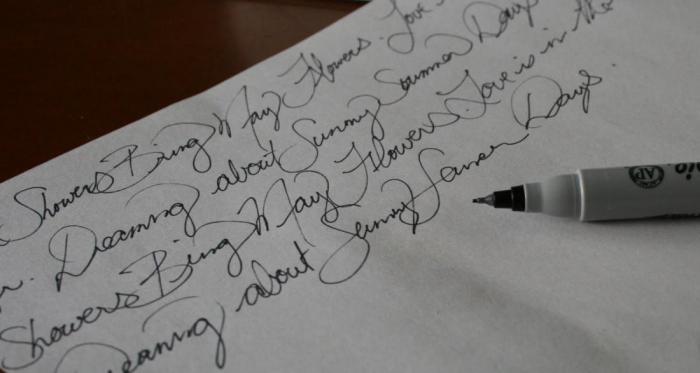 Showers Bring May Flowers. Love
Dreaming about Sunny Summer Days
Showers Bring May Flowers. Love is in the
Dreaming about Sunny Summer Days.
AP